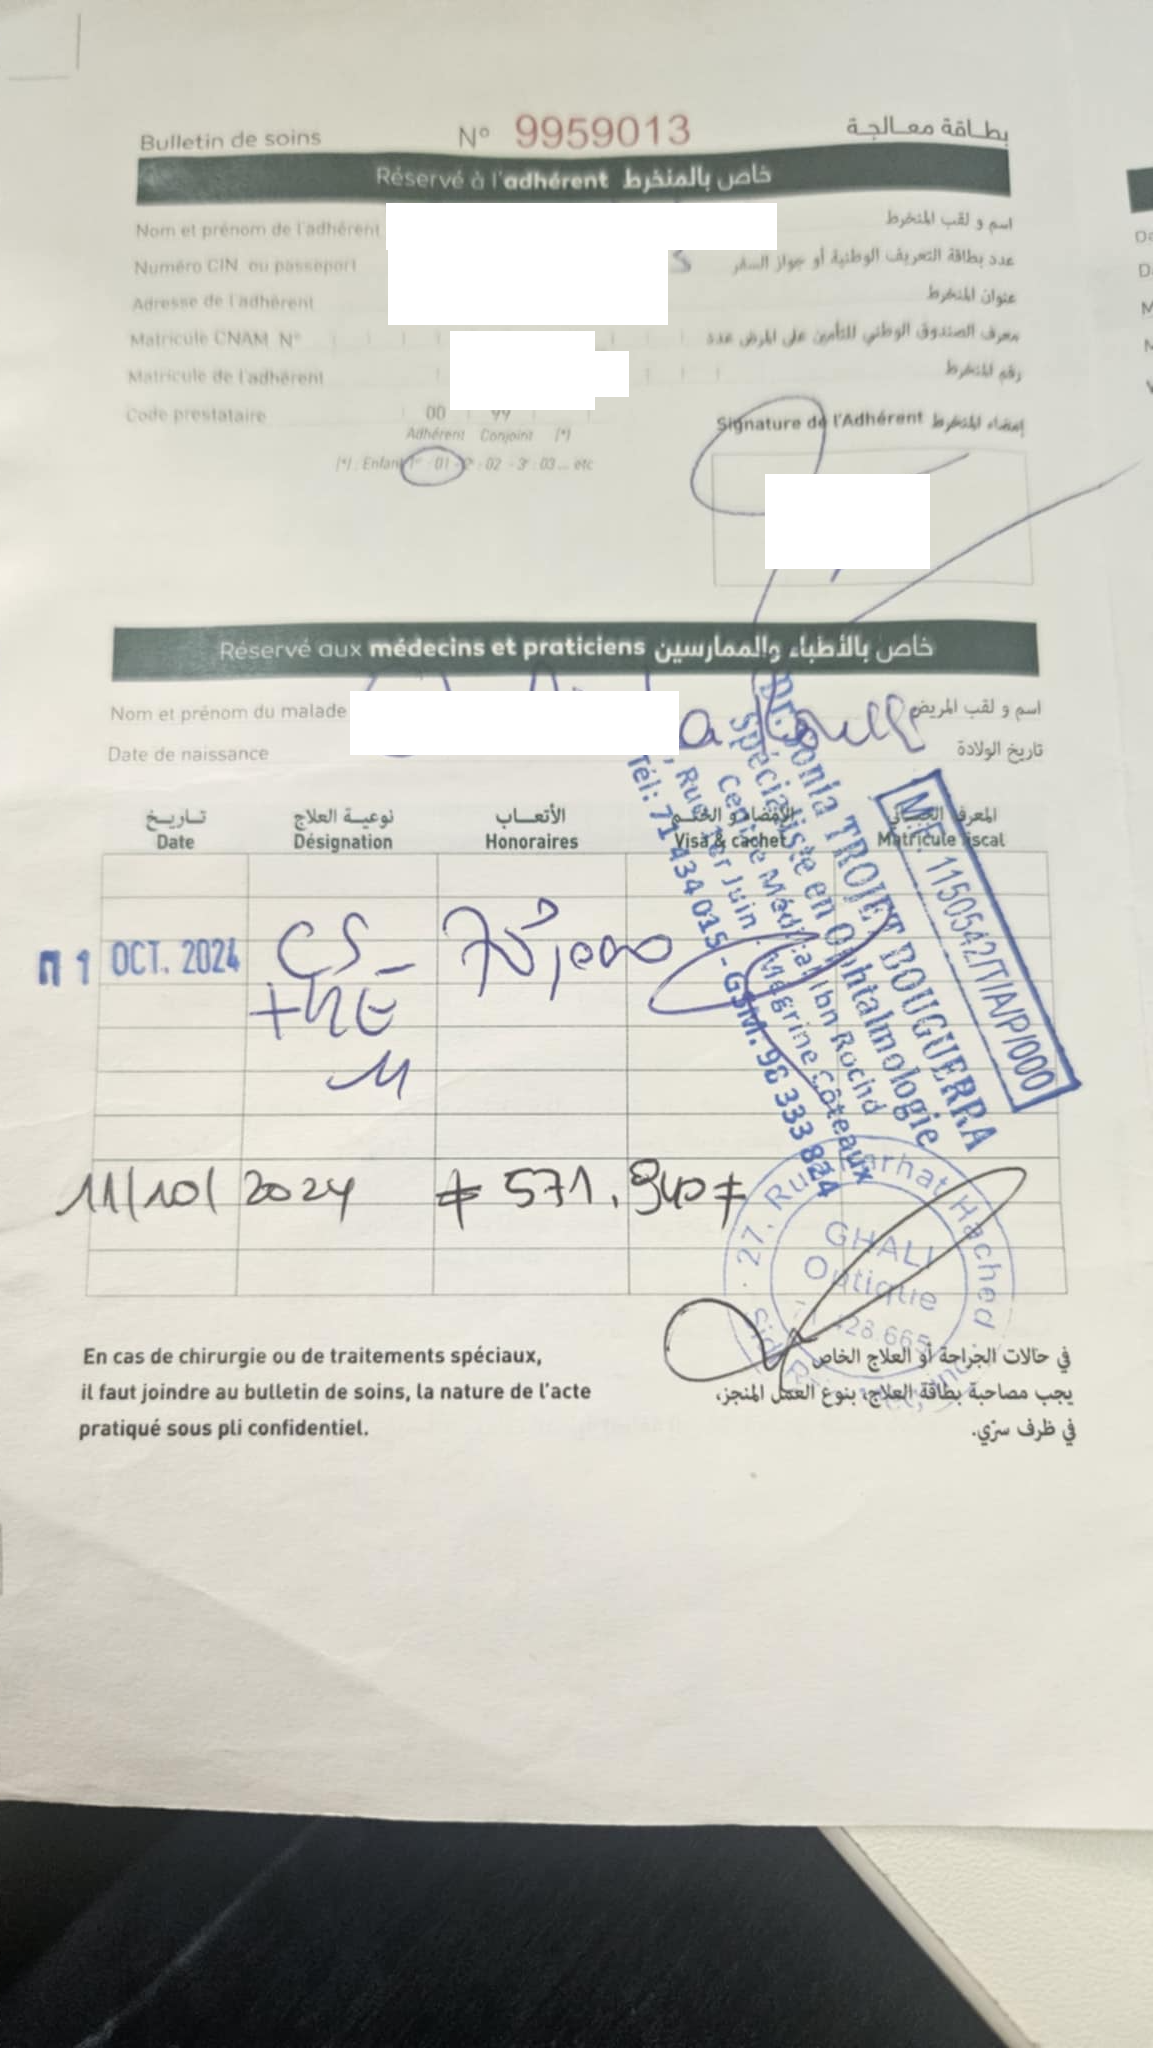 Bulletin de soins N° 9959013 بطاقة معالجة
Réservé à l'adhérent خاص بالمنخرط
Nom et prénom de l'adhérent اسم و لقب المنخرط
Numéro CIN ou passeport عدد بطاقة التعريف الوطنية أو جواز السفر
Adresse de l'adhérent عنوان المنخرط
Matricule CNAM N° معرف الصندوق الوطني للتأمين على المرض عدد
Matricule de l'adhérent رقم المنخرط
Code prestataire 00 99
Adhérent Conjoint (*)
(*) : Enfant 1er : 01 - 2e : 02 - 3e : 03 ... etc
Signature de l'Adhérent إمضاء المنخرط
Réservé aux médecins et praticiens خاص بالأطباء والممارسين
Nom et prénom du malade اسم و لقب المريض
Date de naissance تاريخ الولادة
تاريخ نوعية العلاج الأتعاب الإمضاء و الختم المعرف الجبائي
Date Désignation Honoraires Visa & cachet Matricule fiscal
Dr. Sonia TROJET BOUGUERRA
Spécialiste en Ophtalmologie
Centre Médical Ibn Rochd
Rue 1er Juin Mégrine Côteaux
Tél: 71 434 015 - GSM. 98 333 824
M.F. 1150542/T/A/P/000
1 OCT. 2024 CS 70,000
11/10/2024 ≠ 571.940 ≠
27, Rue Farhat Hached
GHALI
Optique
428 665
En cas de chirurgie ou de traitements spéciaux,
il faut joindre au bulletin de soins, la nature de l'acte
pratiqué sous pli confidentiel.
في حالات الجراحة أو العلاج الخاص
يجب مصاحبة بطاقة العلاج، بنوع العمل المنجز،
في ظرف سرّي.